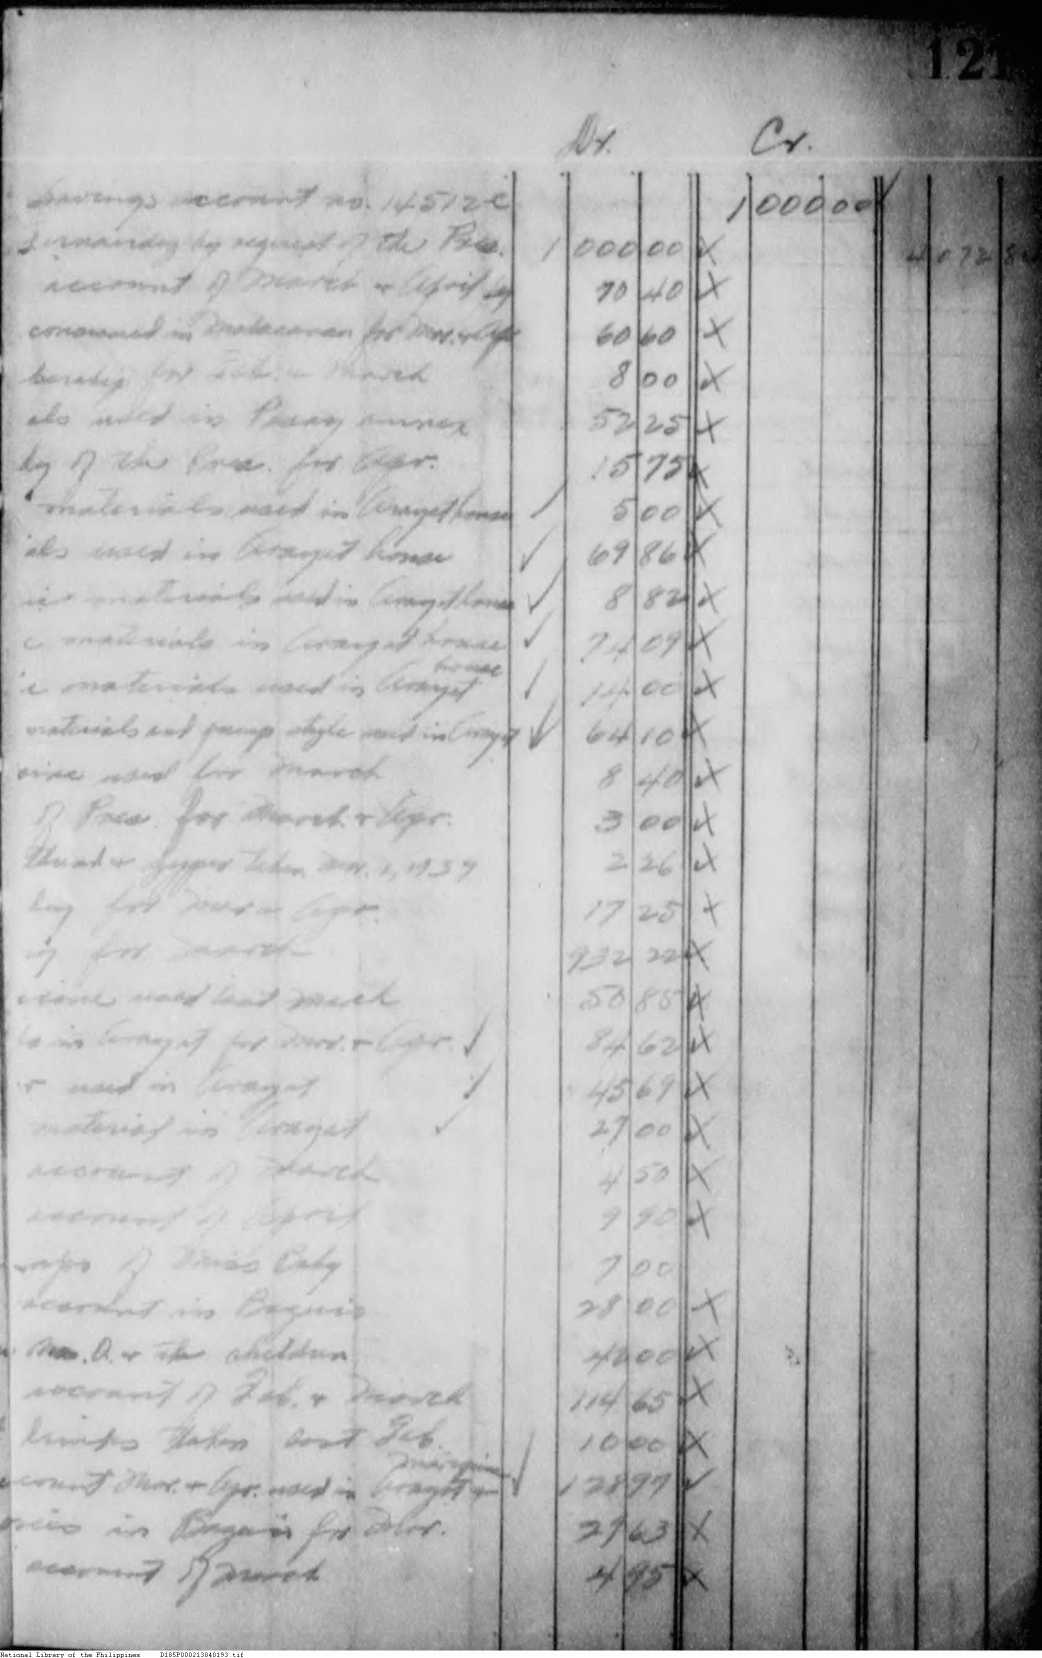 121
Dr. Cr.
Savings account no. 14512C 1 000 00
by request of the Pres. 1 000 00 X 4 072 8
account of March & April 70 40 X
consumed in Malacanan for Mar. & Apr 60 60 X
for Feb. & March 8 00 X
als used in Pasay annex 52 25 X
by of the Pres. for Apr. 15 75 X
materials used in Arayat house ✓ 5 00 X
als used in Arayat house ✓ 69 86 X
materials used in Arayat house ✓ 8 82 X
c materials in Arayat house ✓ 74 09 X
c materials used in Arayat house ✓ 14 00 X
materials and pump used in Arayat ✓ 64 10 X
used for March 8 40 X
of Pres. for March & Apr. 3 00 X
thread & zipper taken Mar. 1, 1937 2 26 X
for Mar & Apr. 17 25 X
for March 932 22 X
used last March 50 85 X
in Arayat for Mar. & Apr. ✓ 84 62 X
used in Arayat ✓ 45 69 X
material in Arayat ✓ 27 00 X
account of March 4 50 X
account of April 9 90 X
of Miss Baby 7 00
account in Baguio 28 00 X
Mrs. Q. & the children 00 X
account of Feb. & March 114 65 X
taken last Feb. 10 00 X
count Mar. & Apr. used in Arayat & ✓ 128 97 ✓
in Baguio for Mar. 29 63 X
account of March 4 95 X
National Library of the Philippines D185P000213840193.tif